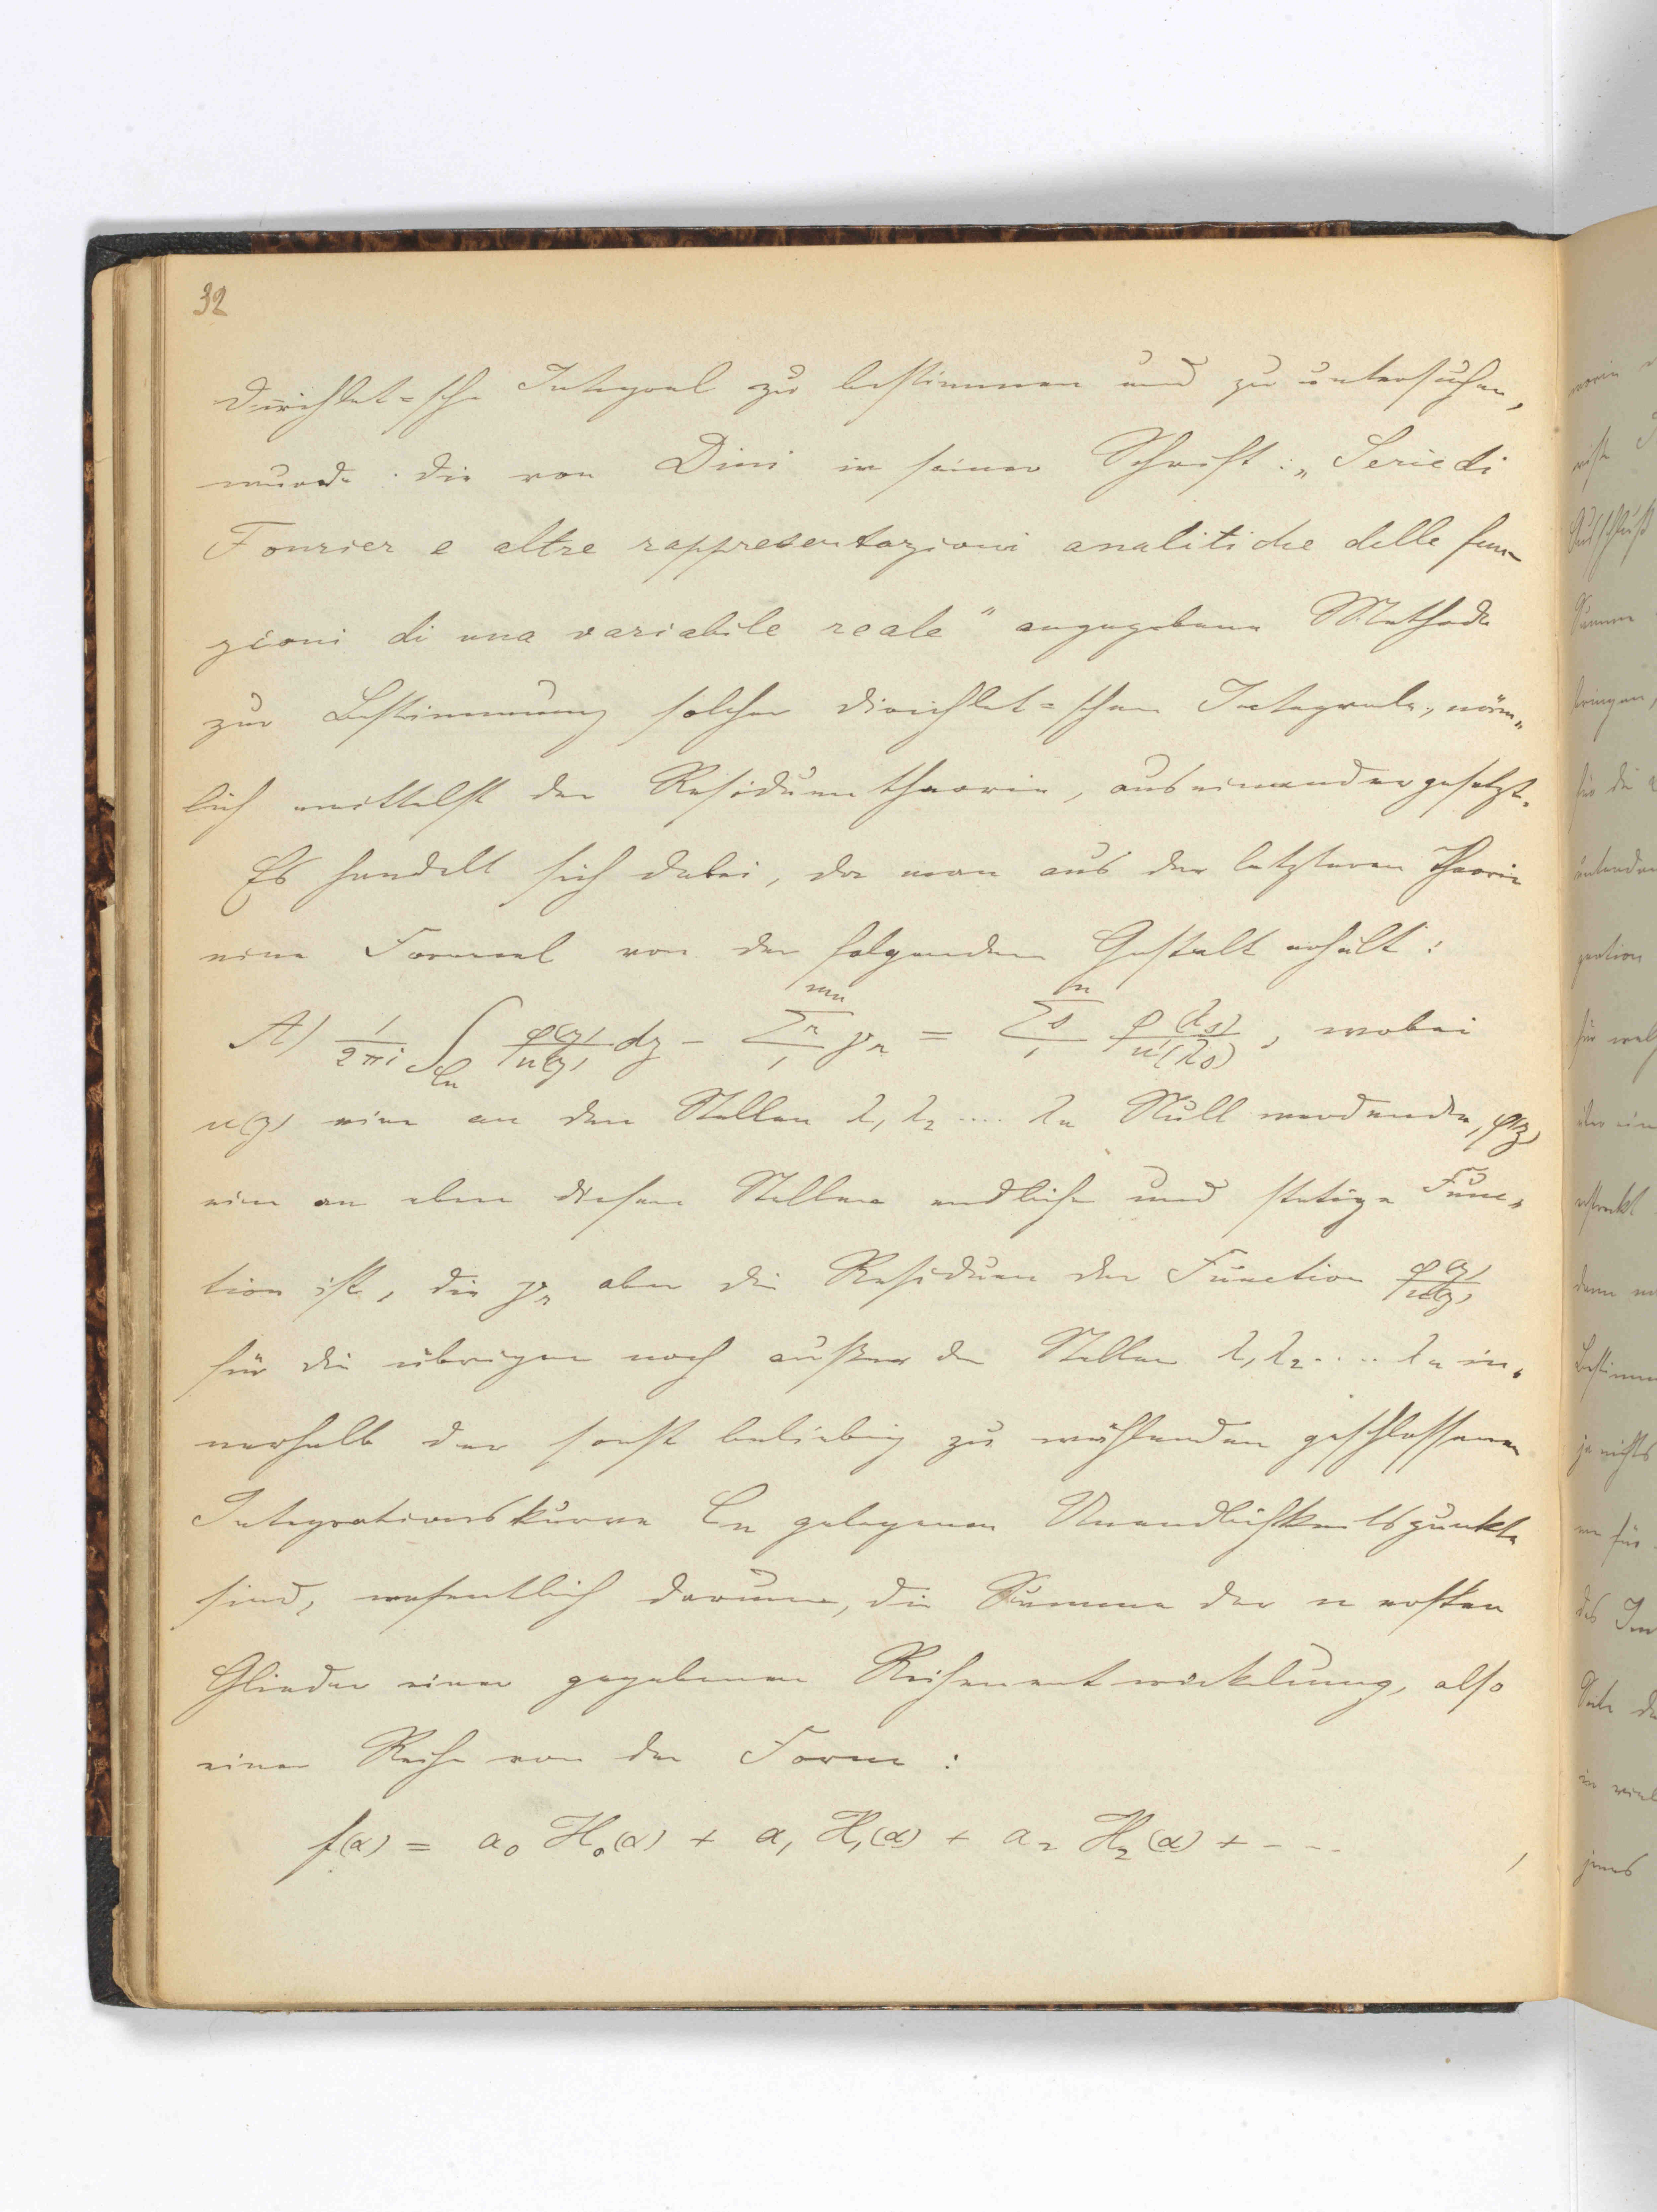 32
Dirichlet=sche Integral zu bestimmen und zu untersuchen,
wurde die von Dini in seiner Schrift: „Serie di
Fourier e altre rappresentazioni analitiche delle fun-
zioni di una variabile reale" angegebene Methode
zur Bestimmung solcher Dirichlet=schen Integrale, näm„
lich mittelst der Residuentheorie, auseinandergesetzt.
Es handelt sich dabei, da man aus der letzteren Theorie
eine Formel von der folgenden Gestalt erhält:
A) 1/2πi ∫_{Cn} φ(z)/u(z) dz - Σ^r_1^{mn} γ_r = Σ^s_1^n φ(λ_s)/u'(λ_s), wobei
u(z) eine an den Stellen λ_1 λ_2 .... λ_n Null werdende, φ(z)
eine an eben diesen Stellen endliche und stetige Func„
tion ist, die γ_r aber die Residuen der Function φ(z)/u(z)
für die übrigen noch außer den Stellen λ_1 λ_2 .... λ_n in„
nerhalb der sonst beliebig zu wählenden geschlossenen
Integrationskurve Cn gelegenen Unendlichkeitspunkte
sind, wesentlich darum, die Summe der n ersten
Glieder einer gegebenen Reihenentwickelung, also
einer Reihe von der Form:
f(α) = a_0 H_0(α) + a_1 H_1(α) + a_2 H_2(α) + - - - ,